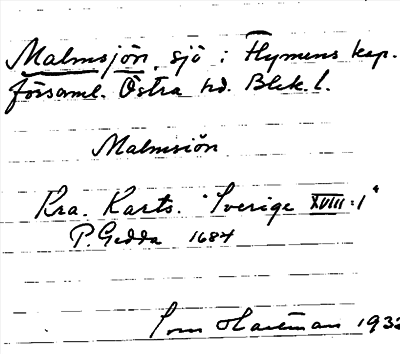 Malmsjön, sjö i Flymens kap.
församl. Östra hd. Blek. l.
Malmsiön
Kra. Karts. "Sverige XVIII:1"
P. Gedda 1684
1932